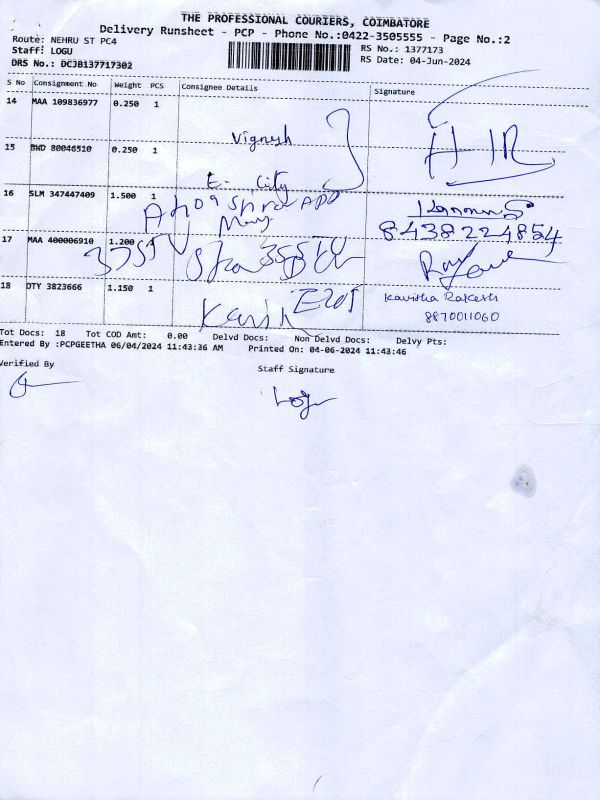 THE PROFESSIONAL COURIERS, COIMBATORE
Delivery Runsheet - PCP - Phone No.:0422-3505555 - Page No.:2
Route: NEHRU ST PC4
RS No.: 1377173
Staff: LOGU
RS Date: 04-Jun-2024
DRS No.: DCJB137717302
S No Consignment No Weight PCS Consignee Details Signature
14 MAA 109836977 0.250 1
Vignesh
15 BWD 80046510 0.250 1
E- City
16 SLM 347447409 1.500 1
8438224854
17 MAA 400006910 1.200
18 DTY 3823666 1.150 1
Kavitha Rakesh
8870011060
Tot Docs: 18 Tot COD Amt: 0.00 Delvd Docs: Non Delvd Docs: Delvy Pts:
Entered By :PCPGEETHA 06/04/2024 11:43:36 AM Printed On: 04-06-2024 11:43:46
Verified By
Staff Signature